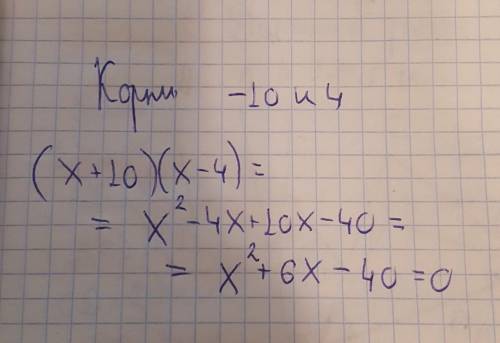 Корни -10 и 4
(x+10)(x-4)=
= x²-4x+10x-40=
= x²+6x-40=0